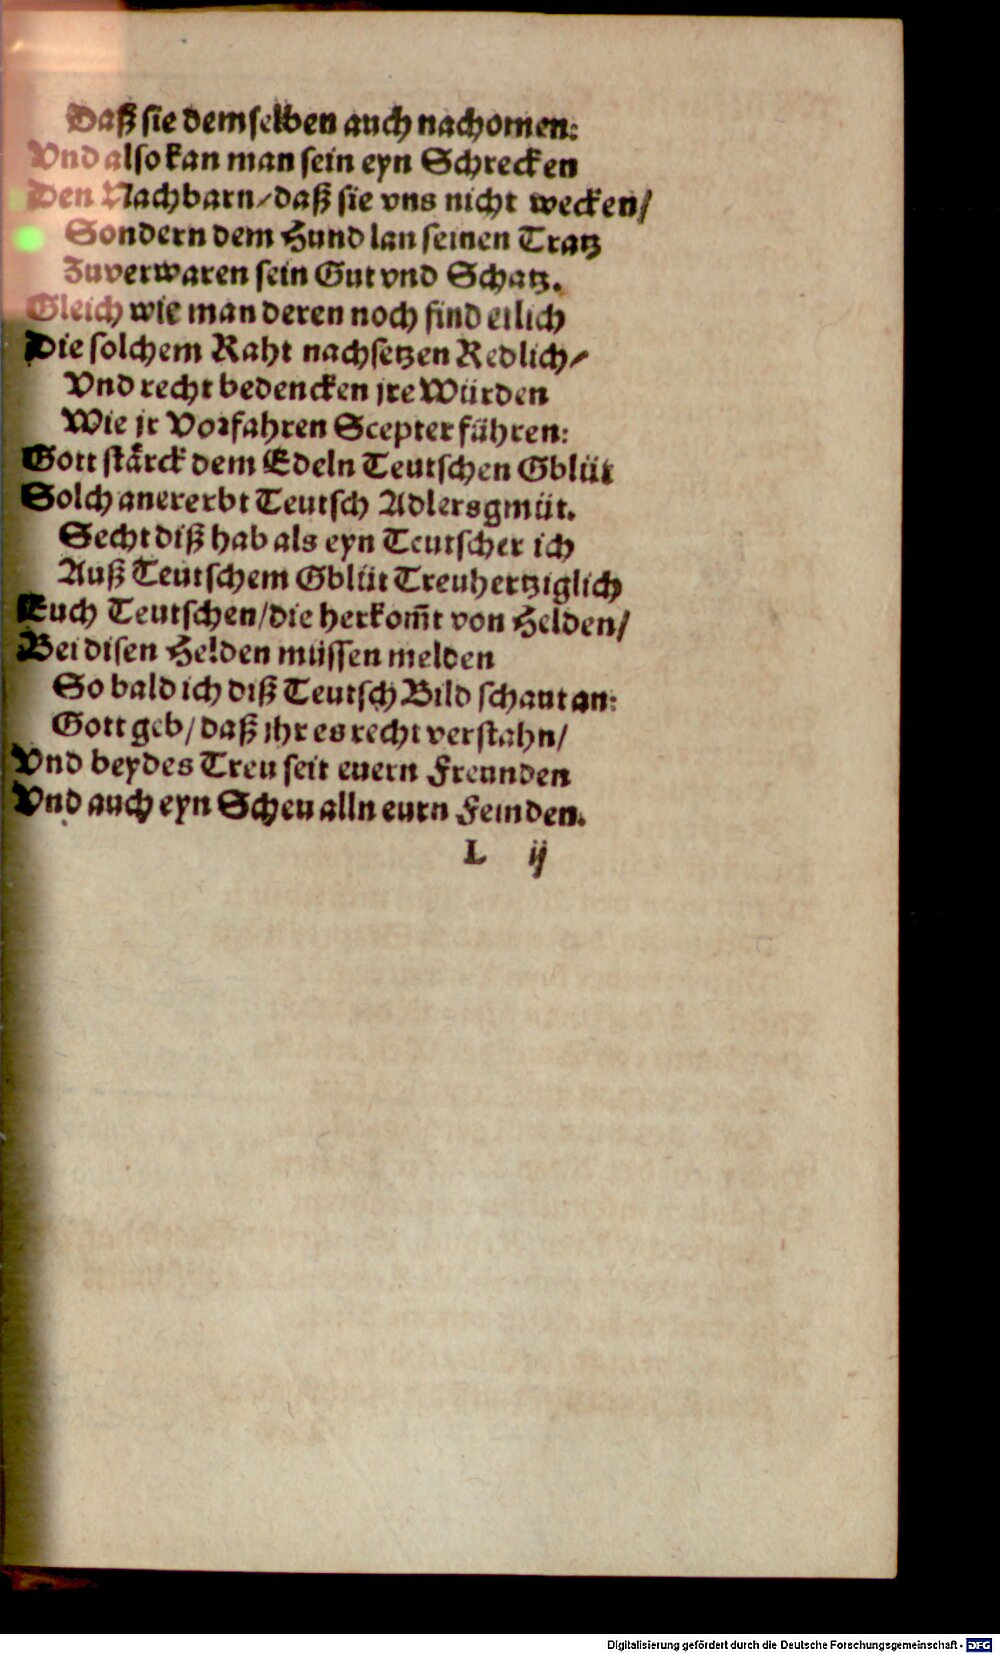 Daß sie demselben auch nachomen:
Vnd also kan man sein eyn Schrecken
Den Nachbarn/daß sie vns nicht wecken/
Sondern dem Hund lan seinen Tratz
Zuverwaren sein Gut vnd Schatz.
Gleich wie man deren noch find etlich
Die solchem Raht nachsetzen Redlich/
Vnd recht bedencken jre Würden
Wie jr Vorfahren Scepter führen:
Gott stärck dem Edeln Teutschen Gblüt
Solch anererbt Teutsch Adlersgmüt.
Secht diß hab als eyn Teutscher ich
Auß Teutschem Gblüt Treuhertziglich
Euch Teutschen/die herkom̃t von Helden/
Bei disen Helden müssen melden
So bald ich diß Teutsch Bild schaut an:
Gott geb/daß jhr es recht verstahn/
Vnd beydes Treu seit euern Freunden
Vnd auch eyn Scheu alln eurn Feinden.
L ij
Digitalisierung gefördert durch die Deutsche Forschungsgemeinschaft - DFG